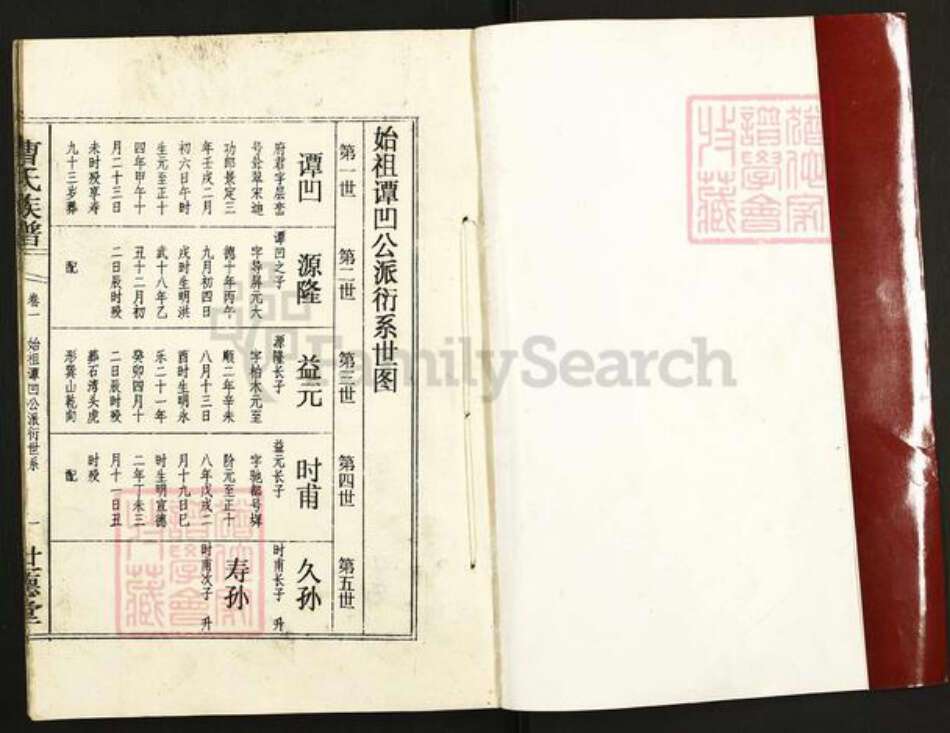 始祖谭凹公派衍系世图
第一世
谭凹
府君字层峦
号耸翠宋迪
功郎景定三
年壬戌二月
初六日午时
生元至正十
四年甲午十
月二十三日
未时殁享寿
九十三岁葬
第二世
源隆
谭凹之子
字导屏元大
德十年丙午
九月初四日
戌时生明洪
武十八年乙
丑十二月初
二日辰时殁
配
第三世
益元
源隆长子
字柏木元至
顺二年辛未
八月十三日
酉时生明永
乐二十一年
癸卯四月十
二日辰时殁
葬石湾头虎
形巽山乾向
第四世
时甫
益元长子
字驰都号墀
阶元至正十
八年戊戌二
月十九日巳
时生明宣德
二年丁未三
月十一日丑
时殁
配
第五世
久孙
时甫长子 升
寿孙
时甫次子 升
曹氏族谱
卷一 始祖谭凹公派衍世系 一
FamilySearch